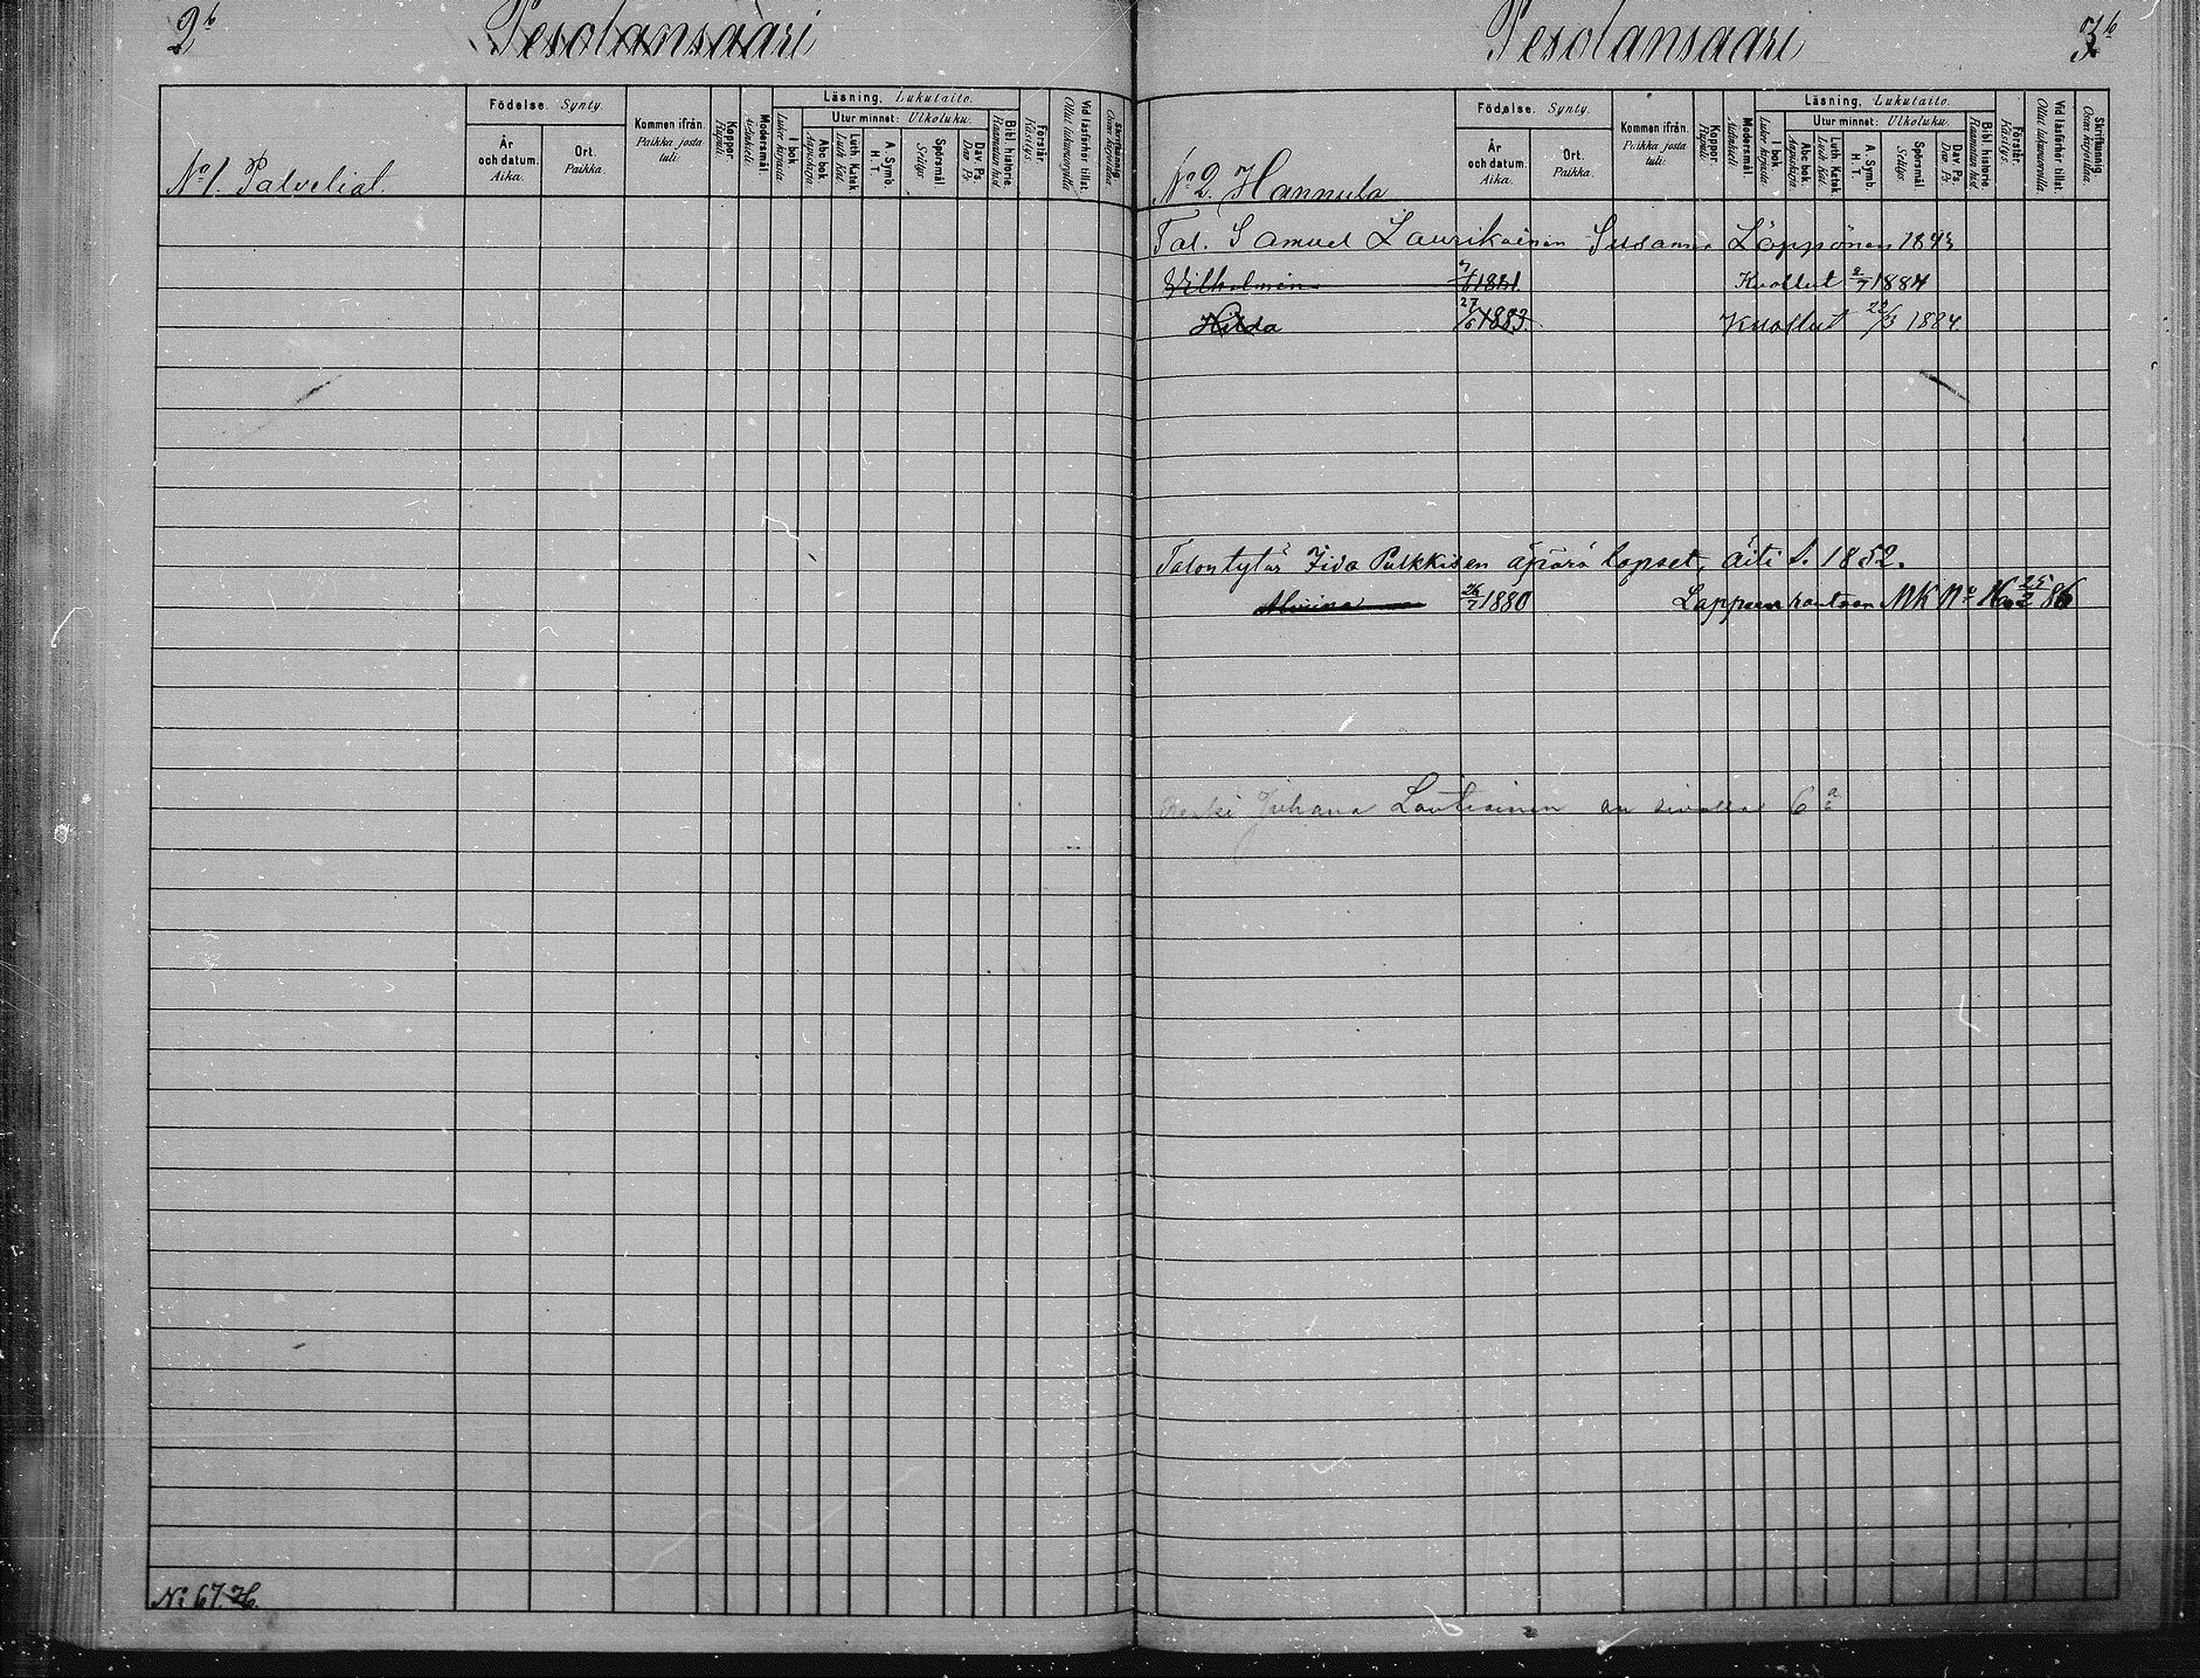 2b Pesolansaari
Födelse. Synty.
År och datum. Aika.
Ort. Paikka.
Kommen ifrån. Paikka josta tuli.
Koppor. Rupuli.
Modersmål. Äidinkieli.
Läsning. Lukutaito.
I bok. Lukee kirjasta
Utur minnet: Ulkoluku.
Abc bok. Aapiskirja.
Luth. Katek. Luth. Kat.
A. Symb. H. T.
Spörsmål Selitys.
Dav. Ps. Daw. Ps.
Bibl. historie. Raamatun hist.
Förstår. Käsitys.
Vid läsförhör tillst. Ollut lukuwuorolla
Skrifkunnig. Osaa kirjoittaa
No 1. Palveliat.
No 67. H.
Pesolansaari 3b
Födelse. Synty.
År och datum. Aika.
Ort. Paikka.
Kommen ifrån. Paikka josta tuli.
Koppor. Rupuli.
Modersmål. Äidinkieli.
Läsning. Lukutaito.
I bok. Lukee kirjasta
Utur minnet: Ulkoluku.
Abc bok. Aapiskirja.
Luth. Katek. Luth. Kat.
A. Symb. H. T.
Spörsmål Selitys.
Dav. Ps. Daw. Ps.
Bibl. historie. Raamatun hist.
Förstår. Käsitys.
Vid läsförhör tillst. Ollut lukuwuorolla
Skrifkunnig. Osaa kirjoittaa
No 2. Hannula
Tal. Samuel Laurikainen Susanna Löppönen 1843
Vilhelmina Kuollut 1884
Hilda 27/6 1883. Kuollut 22/3 1884
Talontytär Fida Pulkkisen äpärä lapset, äiti s. 1852.
26/7 1880 Lappeenrantaan MK No 86
Renki Juhana Lautiainen on sivulla 6